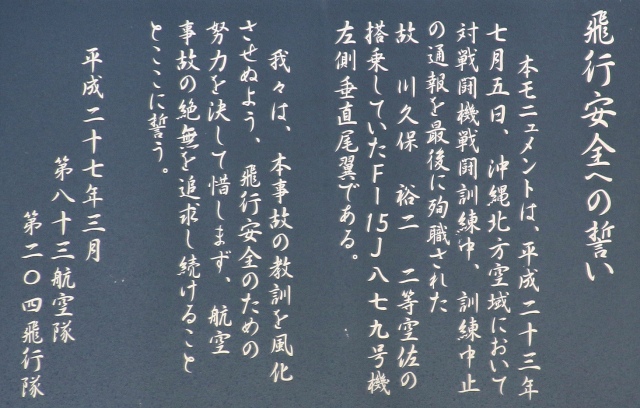 飛行安全への誓い
本モニュメントは、平成二十三年
七月五日、沖縄北方空域において
対戦闘機戦闘訓練中、訓練中止
の通報を最後に殉職された
故　川久保　裕二　二等空佐の
搭乗していたF－15J八七九号機
左側垂直尾翼である。
我々は、本事故の教訓を風化
させぬよう、飛行安全のための
努力を決して惜しまず、航空
事故の絶無を追求し続けること
とここに誓う。
平成二十七年三月
第八十三航空隊
第二〇四飛行隊